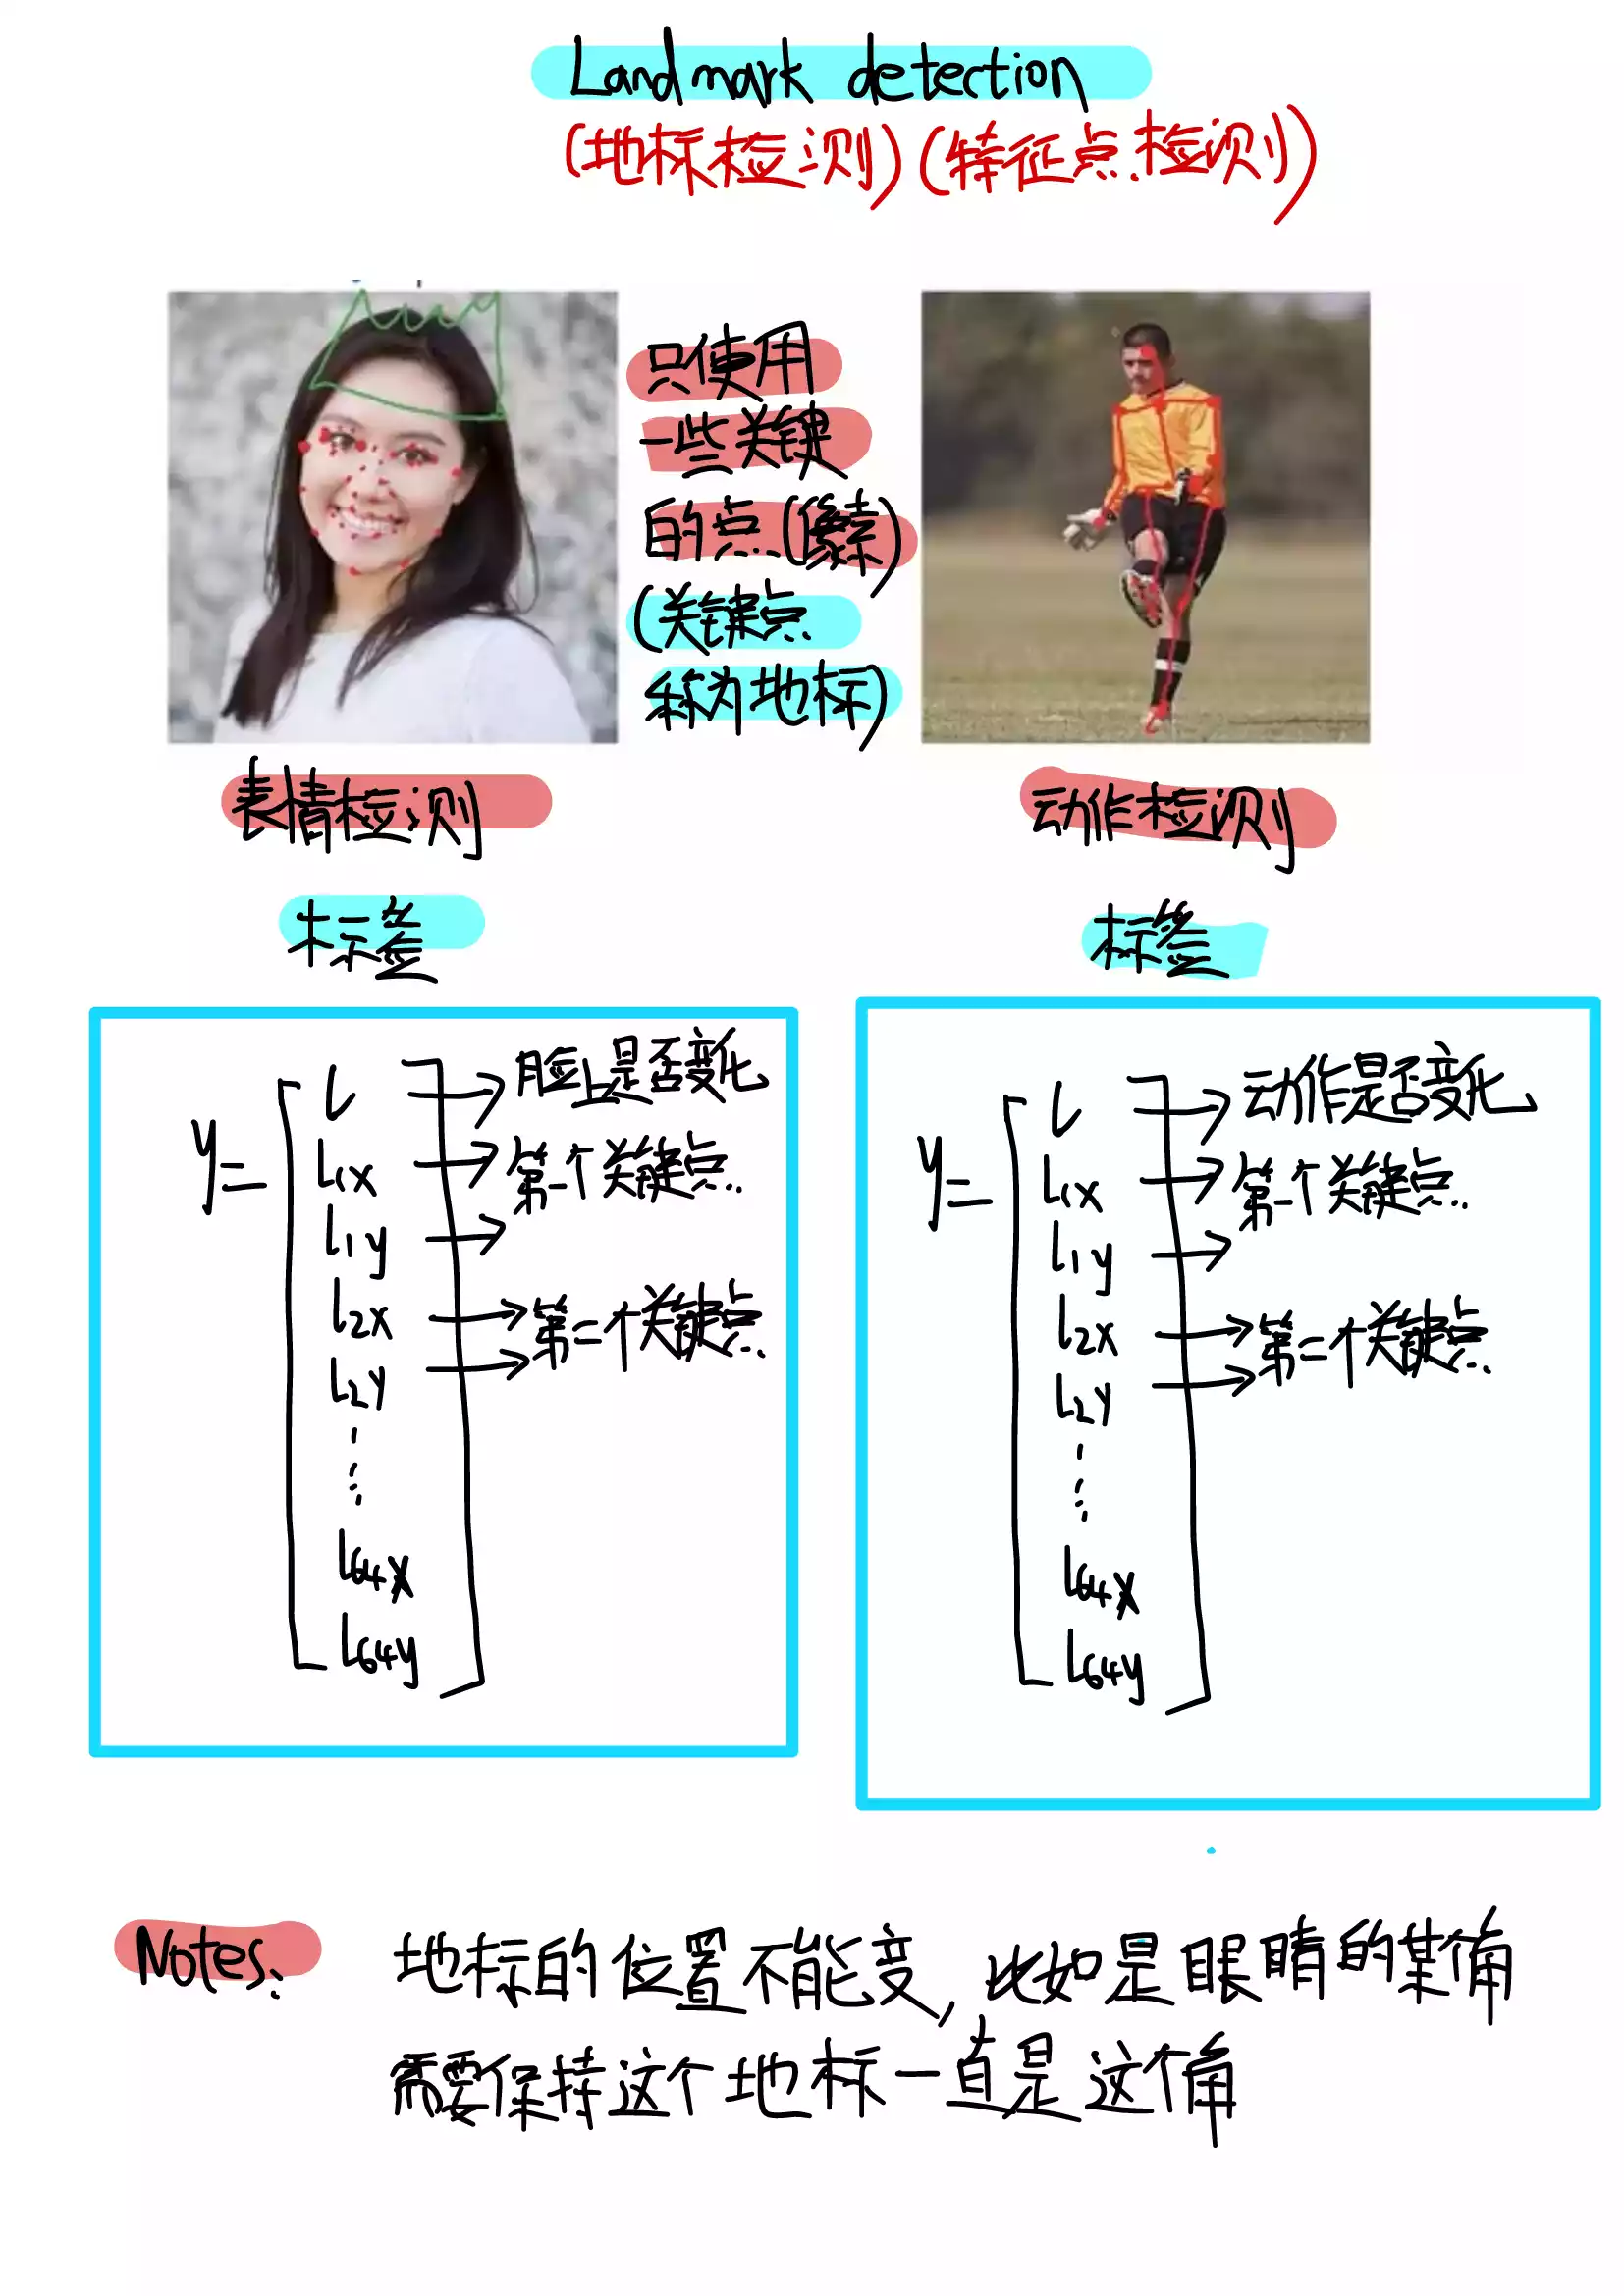 Landmark detection
(地标检测)(特征点检测)
只使用
一些关键
的点(像素)
(关键点
称为地标)
表情检测
动作检测
标签
标签
y=
L
L1x
L1y
L2x
L2y
⋮
L64x
L64y
脸上是否变化
第一个关键点
第二个关键点
y=
L
L1x
L1y
L2x
L2y
⋮
L64x
L64y
动作是否变化
第一个关键点
第二个关键点
Notes: 地标的位置不能变, 比如是眼睛的某个角
需要保持这个地标一直是这个角